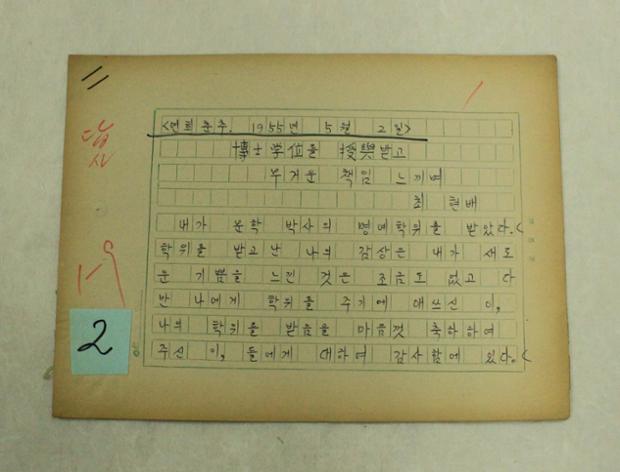 <연희춘추. 1955년 5월 2일>
博士学位를 授與받고
무거운 책임 느끼며
최 현배
내가 문학 박사의 명예학위를 받았다.
학위를 받고난 나의 감상은 내가 새로
운 기쁨을 느낀 것은 조금도 없고 다
만 나에게 학위를 주기에 애쓰신 이,
나의 학위를 받음을 마음껏 축하하여
주신 이, 들에게 대하여 감사함에 있다.
1-9
2